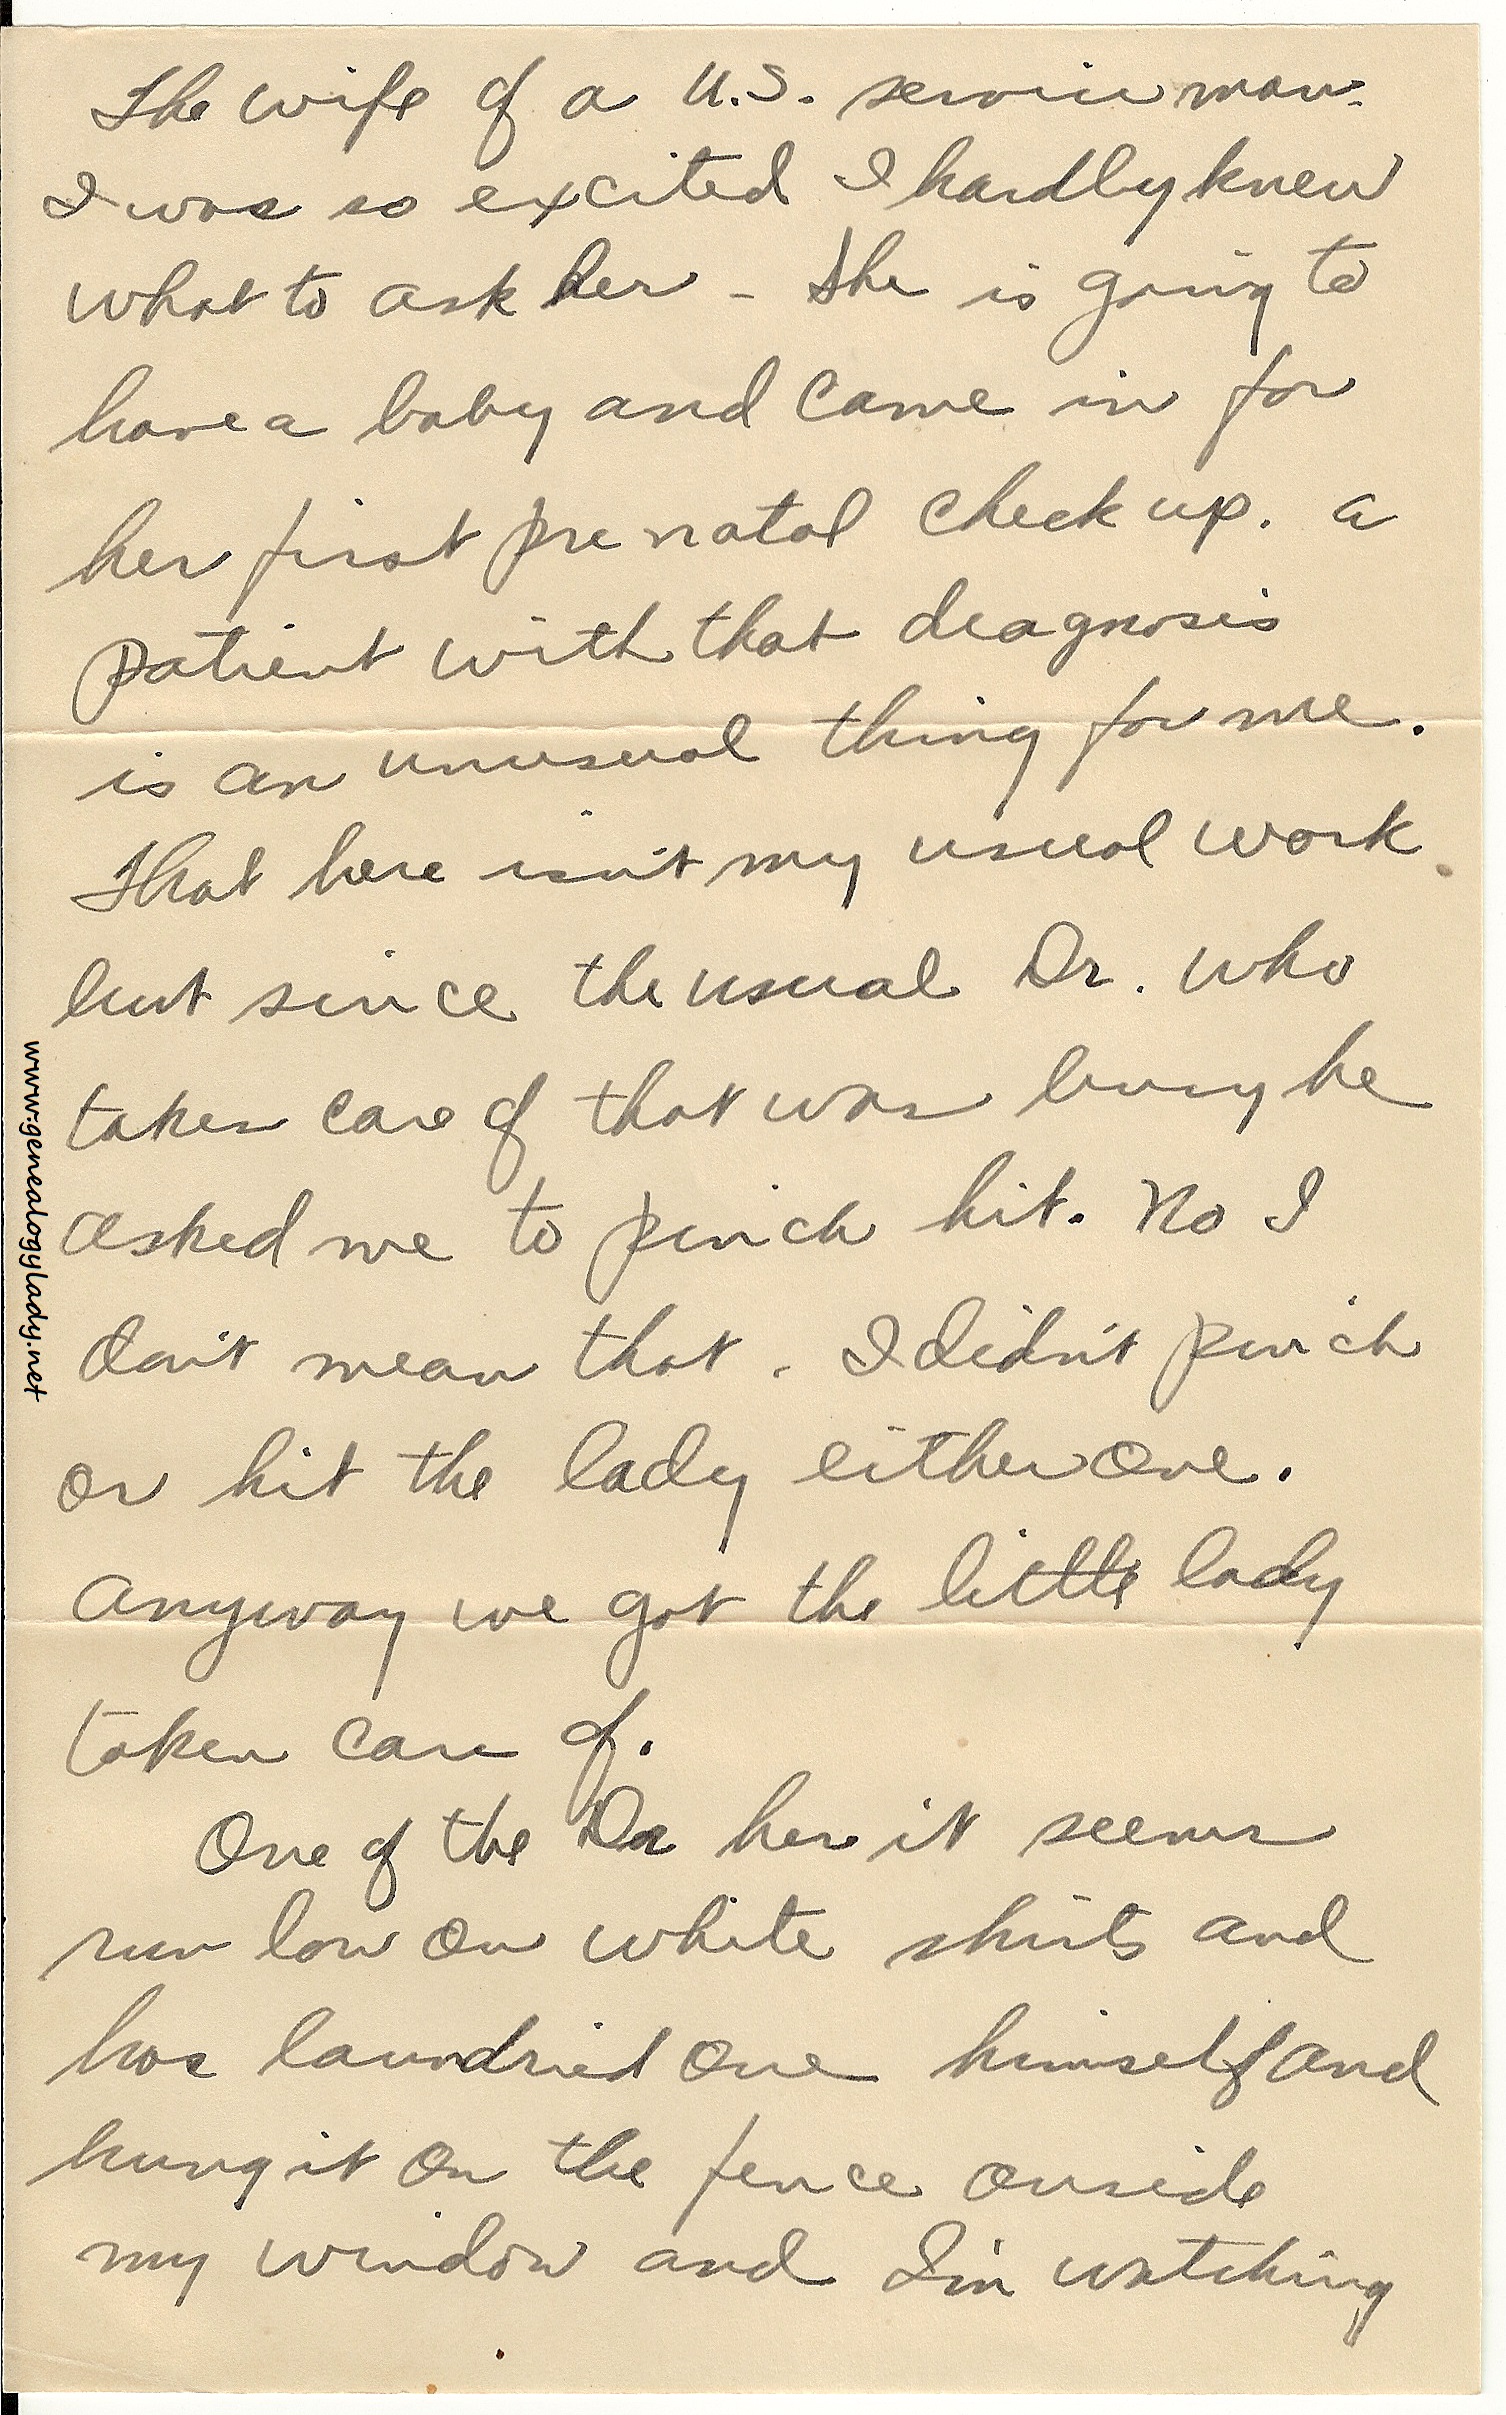 The wife of a U.S. service man.
I was so excited I hardly knew
what to ask her - She is going to
have a baby and came in for
her first pre natal check up. A
patient with that diagnosis
is an unusual thing for me.
That here isn't my usual work.
but since the usual Dr. who
takes care of that was busy he
asked me to pinch hit. No I
don't mean that. I didn't pinch
or hit the lady either one.
Anyway we got the little lady
taken care of.
One of the Dr here it seems
run low on white shirts and
has laundried one himself and
hung it on the fence ouside
my window and I'm watching
www.genealogylady.net